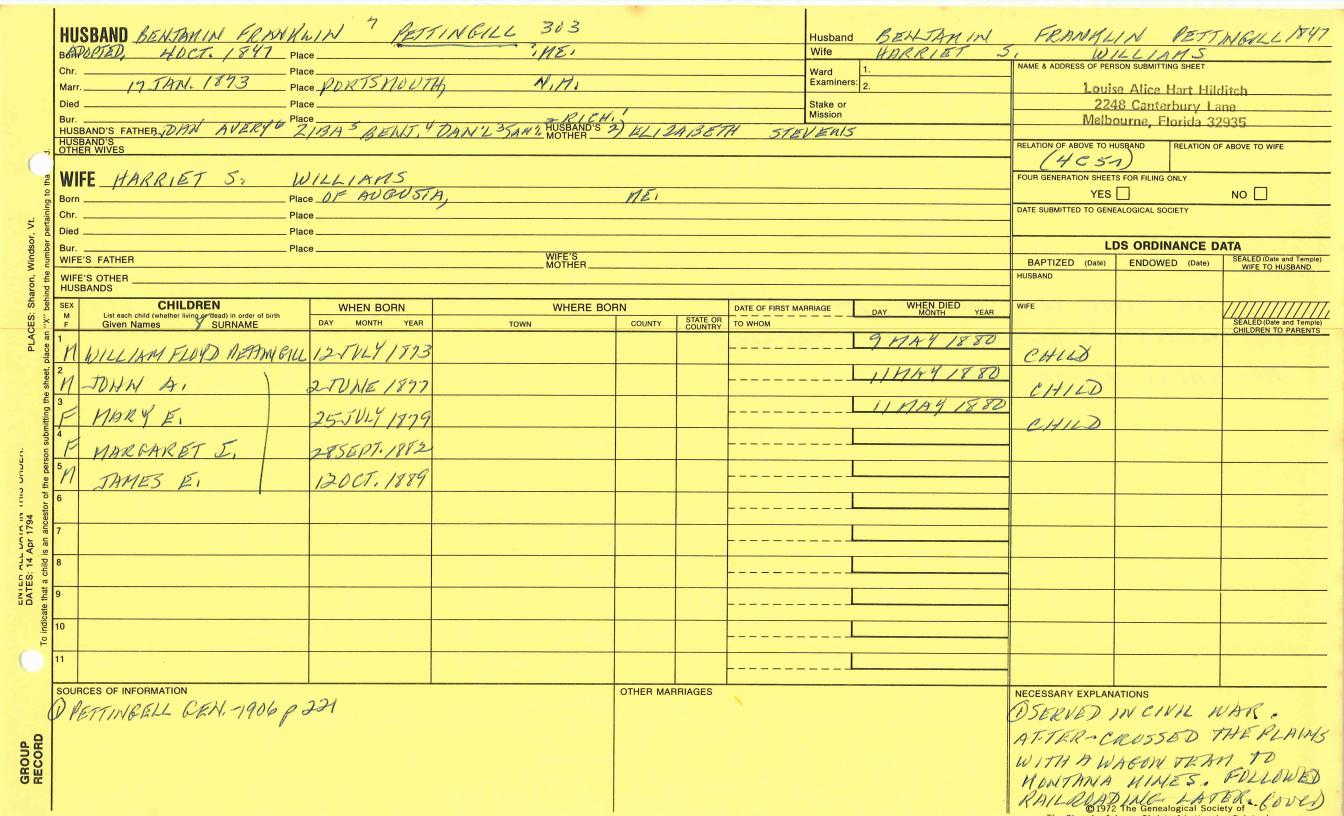 HUSBAND BENJAMIN FRANKLIN 7 PETTINGILL 303
Born ADOPTED, 4 OCT. 1847 Place ME.
Chr. Place
Marr. 17 JAN. 1873 Place PORTSMOUTH, N.H.
Died Place
Bur. Place
HUSBAND'S FATHER DAN AVERY 6 ZIBA 5 BENJ. 4 DAN'L 3 SAM. 2 RICH. 1 HUSBAND'S MOTHER 2) ELIZABETH STEVENS
HUSBAND'S OTHER WIVES
Husband BENJAMIN FRANKLIN PETTINGILL 1847
Wife HARRIET S. WILLIAMS
Ward Examiners: 1.
2.
Stake or Mission
NAME & ADDRESS OF PERSON SUBMITTING SHEET
Louise Alice Hart Hilditch
2248 Canterbury Lane
Melbourne, Florida 32935
RELATION OF ABOVE TO HUSBAND RELATION OF ABOVE TO WIFE
FOUR GENERATION SHEETS FOR FILING ONLY
YES NO
DATE SUBMITTED TO GENEALOGICAL SOCIETY
WIFE HARRIET S. WILLIAMS
Born Place OF AUGUSTA, ME.
Chr. Place
Died Place
Bur. Place
WIFE'S FATHER WIFE'S MOTHER
WIFE'S OTHER HUSBANDS
LDS ORDINANCE DATA
BAPTIZED (Date) ENDOWED (Date) SEALED (Date and Temple) WIFE TO HUSBAND
HUSBAND
WIFE
SEALED (Date and Temple) CHILDREN TO PARENTS
SEX M F CHILDREN WHEN BORN WHERE BORN DATE OF FIRST MARRIAGE WHEN DIED
List each child (whether living or dead) in order of birth
Given Names SURNAME DAY MONTH YEAR TOWN COUNTY STATE OR COUNTRY TO WHOM DAY MONTH YEAR
1 M WILLIAM FLOYD PETTINGILL 12 JULY 1873 9 MAY 1880 CHILD
2 M JOHN A. 2 JUNE 1877 11 MAY 1880 CHILD
3 F MARY E. 25 JULY 1879 11 MAY 1880 CHILD
4 F MARGARET I. 28 SEPT. 1882
5 M JAMES E. 12 OCT. 1889
6
7
8
9
10
11
SOURCES OF INFORMATION
① PETTINGELL GEN.-1906 p 221
OTHER MARRIAGES
NECESSARY EXPLANATIONS
① SERVED IN CIVIL WAR.
AFTER-CROSSED THE PLAINS
WITH A WAGON TEAM TO
MONTANA MINES. FOLLOWED
RAILROADING LATER.
©1972 The Genealogical Society of
PLACES: Sharon, Windsor, Vt.
ENTER ALL DATA IN THIS ORDER:
DATES: 14 Apr 1794
To indicate that a child is an ancestor of the person submitting the sheet, place an "X" behind the number pertaining to tha
GROUP RECORD